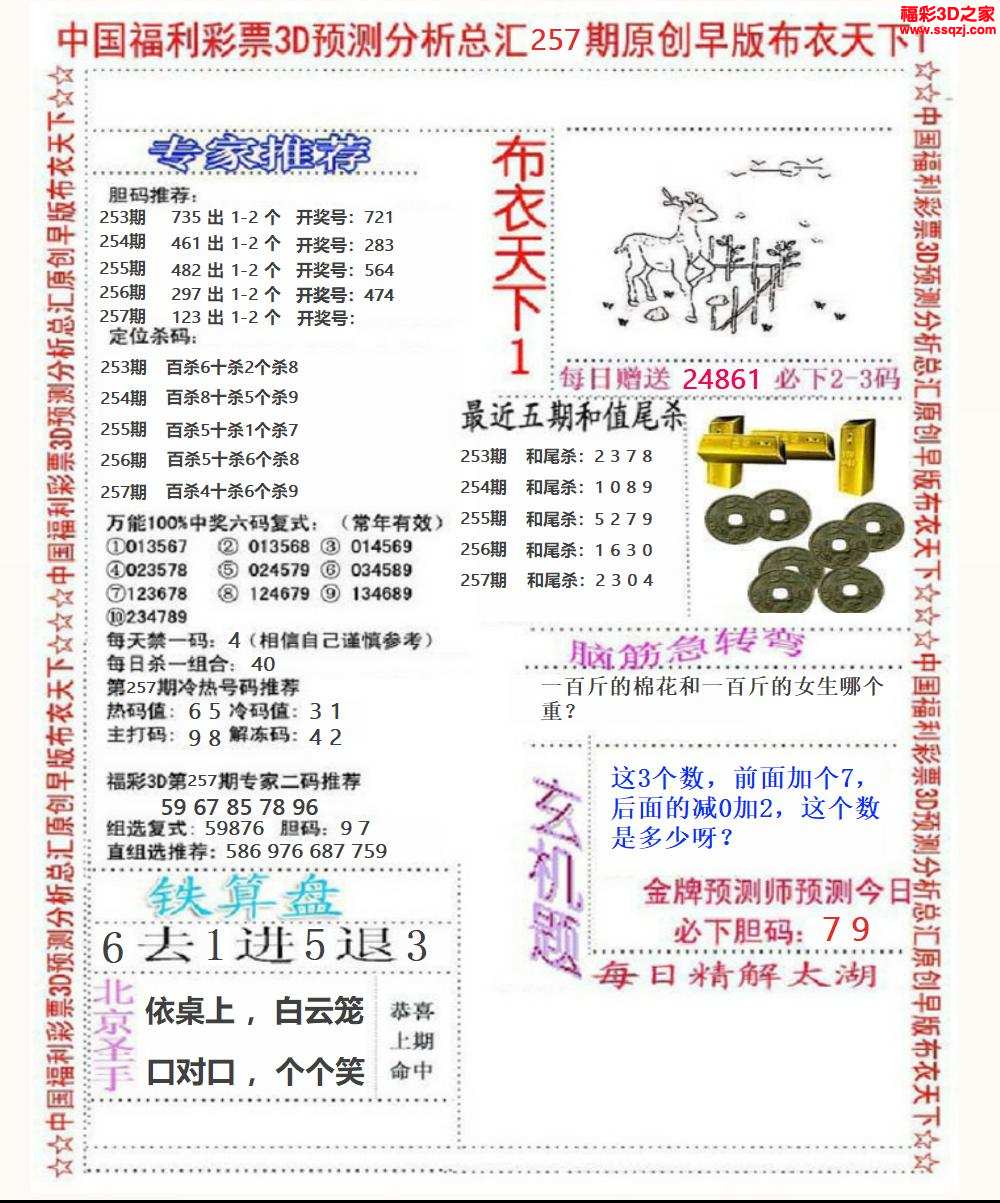 福彩3D之家
www.ssqzj.com
中国福利彩票3D预测分析总汇257期原创早版布衣天下1
☆☆中国福利彩票3D预测分析总汇原创早版布衣天下☆☆☆中国福利彩票3D预测分析总汇原创早版布衣天下☆☆
专家推荐
胆码推荐:
253期 735 出 1-2 个 开奖号: 721
254期 461 出 1-2 个 开奖号: 283
255期 482 出 1-2 个 开奖号: 564
256期 297 出 1-2 个 开奖号: 474
257期 123 出 1-2 个 开奖号:
定位杀码:
253期 百杀6十杀2个杀8
254期 百杀8十杀5个杀9
255期 百杀5十杀1个杀7
256期 百杀5十杀6个杀8
257期 百杀4十杀6个杀9
万能100%中奖六码复式: (常年有效)
①013567 ② 013568 ③ 014569
④023578 ⑤ 024579 ⑥ 034589
⑦123678 ⑧ 124679 ⑨ 134689
⑩234789
每天禁一码: 4 (相信自己谨慎参考)
每日杀一组合: 40
第257期冷热号码推荐
热码值: 6 5 冷码值: 3 1
主打码: 9 8 解冻码: 4 2
福彩3D第257期专家二码推荐
59 67 85 78 96
组选复式: 59876 胆码: 9 7
直组选推荐: 586 976 687 759
铁算盘
6去1进5退3
北京圣手
依桌上，白云笼
口对口，个个笑
恭喜
上期
命中
布衣天下1
每日赠送 24861 必下2-3码
最近五期和值尾杀
253期 和尾杀: 2 3 7 8
254期 和尾杀: 1 0 8 9
255期 和尾杀: 5 2 7 9
256期 和尾杀: 1 6 3 0
257期 和尾杀: 2 3 0 4
脑筋急转弯
一百斤的棉花和一百斤的女生哪个
重?
玄机题
这3个数，前面加个7，
后面的减0加2，这个数
是多少呀？
金牌预测师预测今日
必下胆码: 7 9
每日精解太湖
☆☆中国福利彩票3D预测分析总汇原创早版布衣天下☆☆☆中国福利彩票3D预测分析总汇原创早版布衣天下☆☆